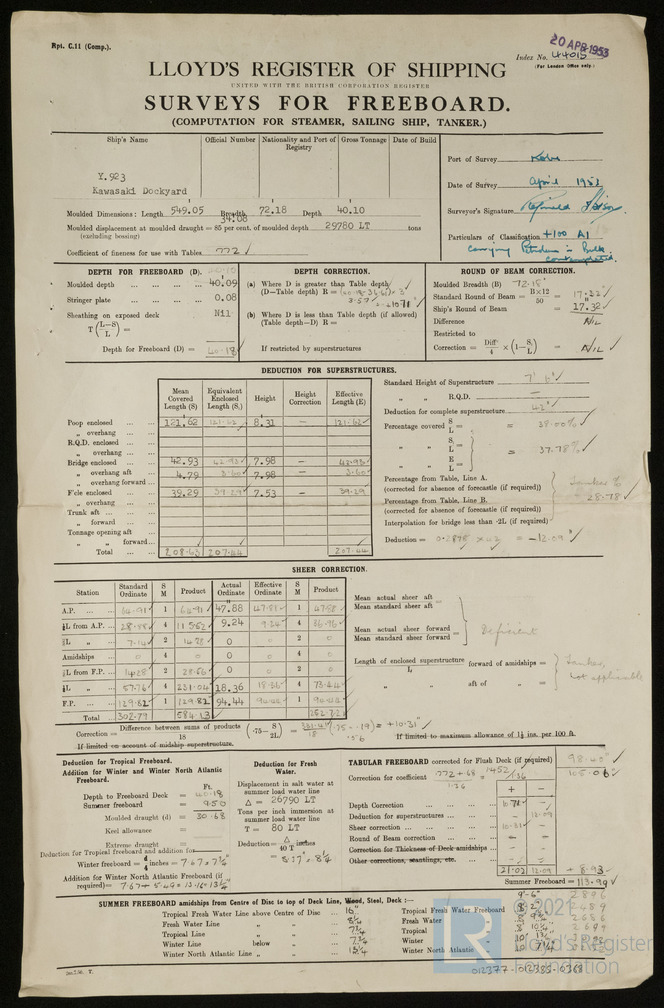 Rpt. C.11 (Comp.).
20 APR 1953
Index No. 44015
(For London Office only.)
LLOYD'S REGISTER OF SHIPPING
UNITED WITH THE BRITISH CORPORATION REGISTER
SURVEYS FOR FREEBOARD.
(COMPUTATION FOR STEAMER, SAILING SHIP, TANKER.)
Ship's Name Official Number Nationality and Port of Registry Gross Tonnage Date of Build
Y.923
Kawasaki Dockyard
Port of Survey Kobe
Date of Survey April 1953
Surveyor's Signature
Particulars of Classification +100 A1
carrying Petroleum in Bulk
contemplated.
Moulded Dimensions: Length 549.05 Breadth 72.18 Depth 40.10
34.08
Moulded displacement at moulded draught = 85 per cent. of moulded depth 29780 LT tons
(excluding bossing)
Coefficient of fineness for use with Tables .772
DEPTH FOR FREEBOARD (D).
Moulded depth 40.09
Stringer plate 0.08
Sheathing on exposed deck Nil
T (L-S / L) =
Depth for Freeboard (D) = 40.18
DEPTH CORRECTION.
(a) Where D is greater than Table depth
(D-Table depth) R =
(b) Where D is less than Table depth (if allowed)
(Table depth-D) R =
If restricted by superstructures
ROUND OF BEAM CORRECTION.
Moulded Breadth (B) 72.18
Standard Round of Beam = B×12 / 50 = 17.32
Ship's Round of Beam = 17.32
Difference Nil
Restricted to
Correction = Diff / 4 × (1 - S₁ / L) = Nil
DEDUCTION FOR SUPERSTRUCTURES.
Mean Covered Length (S) Equivalent Enclosed Length (S₁) Height Height Correction Effective Length (E)
Poop enclosed 121.62 121.62 8.31 — 121.62
„ overhang
R.Q.D. enclosed
„ overhang
Bridge enclosed 42.93 42.93 7.98 — 42.93
„ overhang aft 4.79 3.60 7.98 — 3.60
„ overhang forward
F'cle enclosed 39.29 39.29 7.53 — 39.29
„ overhang
Trunk aft
„ forward
Tonnage opening aft
„ „ forward
Total 208.63 207.44 207.44
Standard Height of Superstructure 7' 6"
„ „ R.Q.D. —
Deduction for complete superstructure 42"
Percentage covered S / L = = 38.00%
„ „ S₁ / L =
„ „ E / L = = 37.78%
Percentage from Table, Line A.
(corrected for absence of forecastle (if required))
Percentage from Table, Line B.
(corrected for absence of forecastle (if required))
Interpolation for bridge less than ·2L (if required)
Tanker %
= 28.78
Deduction = 0.2878 × 42 = -12.09"
SHEER CORRECTION.
Station Standard Ordinate S M Product Actual Ordinate Effective Ordinate S M Product
A.P. 64.91 1 64.91 47.88 47.88 1 47.88
⅙L from A.P. 28.88 4 115.52 9.24 9.24 4 36.96
⅓L „ 7.14 2 14.28 0 2 0
Amidships 0 4 0 0 4 0
⅓L from F.P. 14.28 2 28.56 0 2 0
⅙L „ 57.76 4 231.04 18.36 18.36 4 73.44
F.P. 129.82 1 129.82 94.44 94.44 1 94.44
Total 302.79 584.13 252.72
Mean actual sheer aft
Mean standard sheer aft =
Mean actual sheer forward
Mean standard sheer forward =
Deficient
Length of enclosed superstructure forward of amidships =
L
„ „ aft of „ =
Tanker,
not applicable
Correction = Difference between sums of products / 18 (·75 - S / 2L) = 331.41 / 18 (.75 - .19) = +10.31
.56
If limited on account of midship superstructure.
If limited to maximum allowance of 1½ ins. per 100 ft.
Deduction for Tropical Freeboard.
Addition for Winter and Winter North Atlantic Freeboard.
Ft.
Depth to Freeboard Deck = 40.18
Summer freeboard = 9.50
Moulded draught (d) = 30.68
Keel allowance =
Extreme draught =
Deduction for Tropical freeboard and addition for
Winter freeboard d / 4 inches = 7.67 = 7¾"
Addition for Winter North Atlantic Freeboard (if
required) = 7.67 + 5.49 = 13.16 = 13¼"
Deduction for Fresh Water.
Displacement in salt water at summer load water line
Δ = 26790 LT
Tons per inch immersion at summer load water line
T = 80 LT
Deduction = Δ / 40 T inches
= 8.37 = 8¼"
TABULAR FREEBOARD corrected for Flush Deck (if required) 98.40
Correction for coefficient .772 + .68 / 1.36 = 1.452 / 1.36 105.06
+ -
Depth Correction 10.71
Deduction for superstructures 12.09
Sheer correction 10.31
Round of Beam correction — —
Correction for Thickness of Deck amidships
Other corrections, scantlings, etc.
21.02 12.09 + 8.93
Summer Freeboard = 113.99
SUMMER FREEBOARD amidships from Centre of Disc to top of Deck Line, Wood, Steel, Deck :—
Tropical Fresh Water Line above Centre of Disc 16"
Fresh Water Line „ „ 8¼
Tropical Line „ „ 7¾
Winter Line below „ 7¾
Winter North Atlantic Line „ „ 13¼
9'- 6"
Tropical Fresh Water Freeboard 8' 2"
Fresh Water „
Tropical „
Winter „
Winter North Atlantic „
© 2021
Lloyd's Register
Foundation
012377-012385-0368